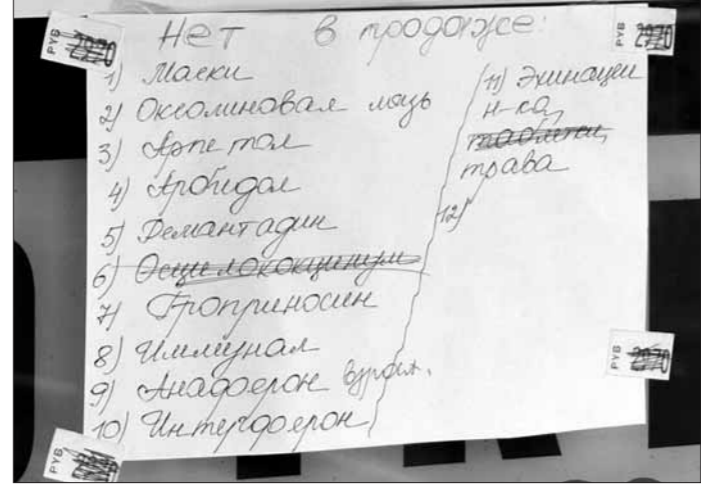 Нет в продаже:
1) Маски
2) Оксолиновая мазь
3) Арпетол
4) Арбидол
5) Ремантадин
6) Осциллококцинум
7) Гроприносин
8) Иммунал
9) Анаферон взросл.
10) Интерферон
11) Эхинацеи
н-ка,
таблетки,
трава
12)
РУБ
РУБ 2970
РУБ 2970
РУБ